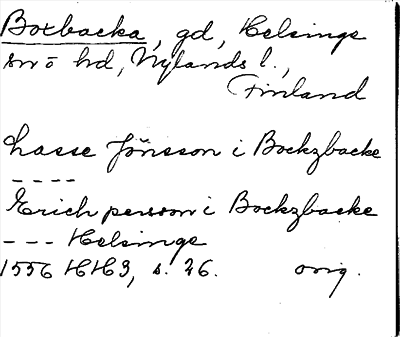 Boxbacka, gd, Helsinge
sn o hd, Nylands l.,
Finland
Lasse Jönsson i Bockzbacke
----
Erich persson i Bockzbacke
--- Helsinge
1556 HH3, s. 26. orig.